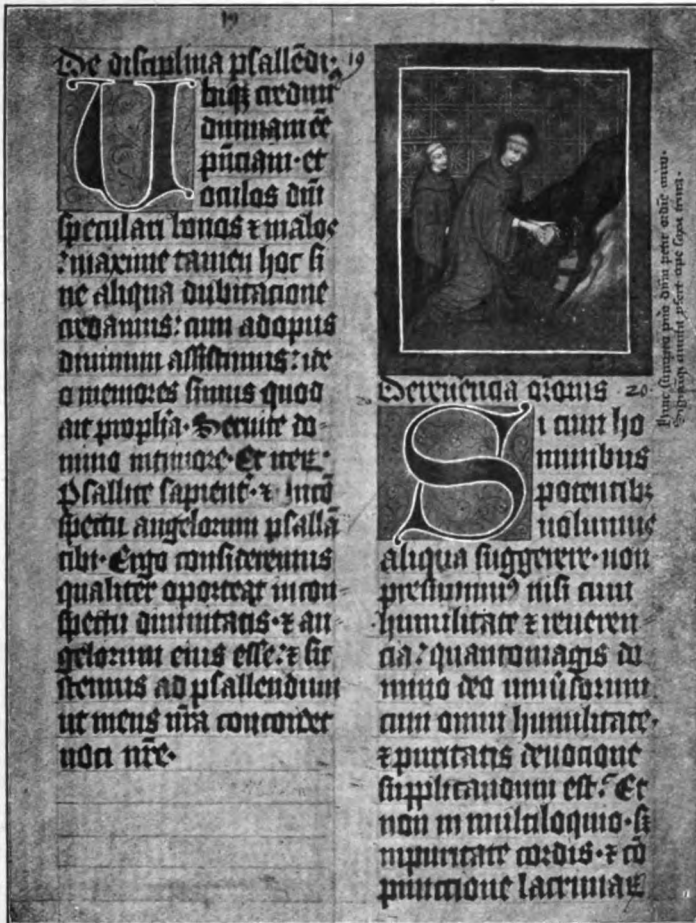 19
De disciplina psallēdi· 19
Ubiqȝ credim
diuinam eē
p̄nciam· et
oculos dn̄i
speculari bonos ⁊ malos
: maxime tamen hoc si
ne aliqua dubitacione
credamus: cum ad opus
diuinum assistimus: ide
o memores simus quod
ait prophā· Seruite do-
mino in timore· Et iteꝝ·
Psallite sapient̄· ⁊ In cō
spectu angelorum psallā
tibi· Ergo consideremus
qualiter oporteat in con-
spectu diuinitatis· ⁊ an
gelorum eius esse: ⁊ sic
stemus ad psallendum
ut mens nr̄a concordet
uoci nr̄e·
De reuerēcia or̄onis · 20
Si cum ho
minibus
potentibꝫ
uolumus
aliqua suggerere· non
presumimꝰ nisi cum
humilitate ⁊ reueren
cia: quantomagis do
mino deo uniu̇sorum
cum omni humilitate·
⁊ puritatis deuocione
supplicandum est: Et
non in multiloquio· sꝫ
in puritate cordis· ⁊ cō
punctione lacrimaꝝ